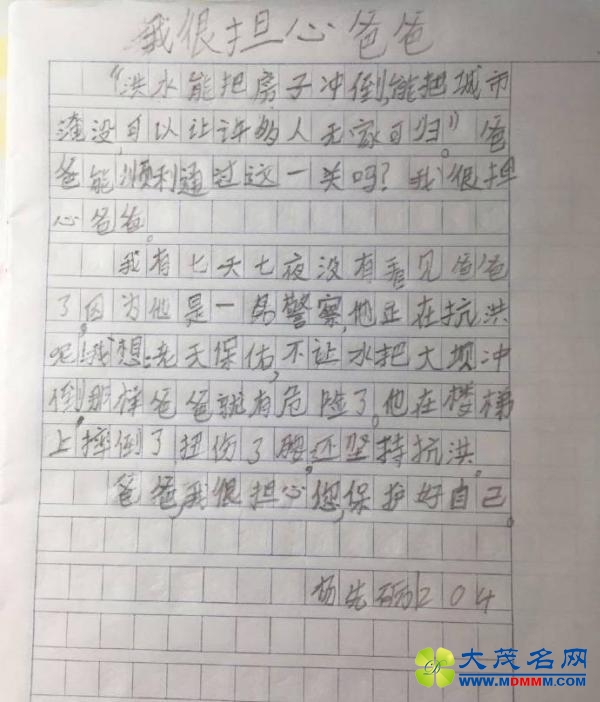 我很担心爸爸
“洪水能把房子冲倒,能把城市
淹没,可以让许多人无家可归”。爸
爸能顺利通过这一关吗?我很担
心爸爸。
我有七天七夜没有看见爸爸
了,因为他是一名警察,他正在抗洪
呢!我想:老天保佑,不让水把大坝冲
倒,那样爸爸就有危险了。他在楼梯
上摔倒了扭伤了腰,还坚持抗洪。
爸爸,我很担心您,保护好自己。
杨先 204
大茂名网
WWW.MDMMM.COM